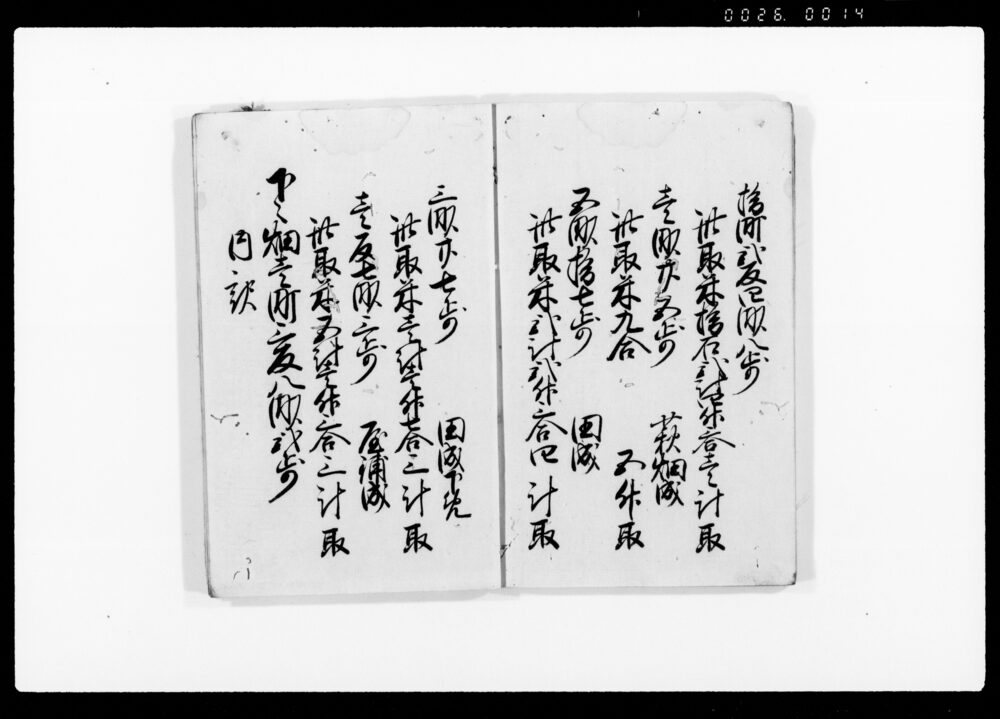 0026. 0014
拾町弐反四畝八歩
此取米拾石弐斗
壱斗取
壱畝廿五歩 萩畑成
此取米九合 五升取
五畝拾七歩 田成
此取米弐斗弐升六合 四斗取
三畝廿七歩 田成下免
此取米壱斗壱升七合 三斗取
壱反七畝三歩 屋浦成
此取米五斗壱升三合 三斗取
下々畑壱町三反八畝弐歩
内訳